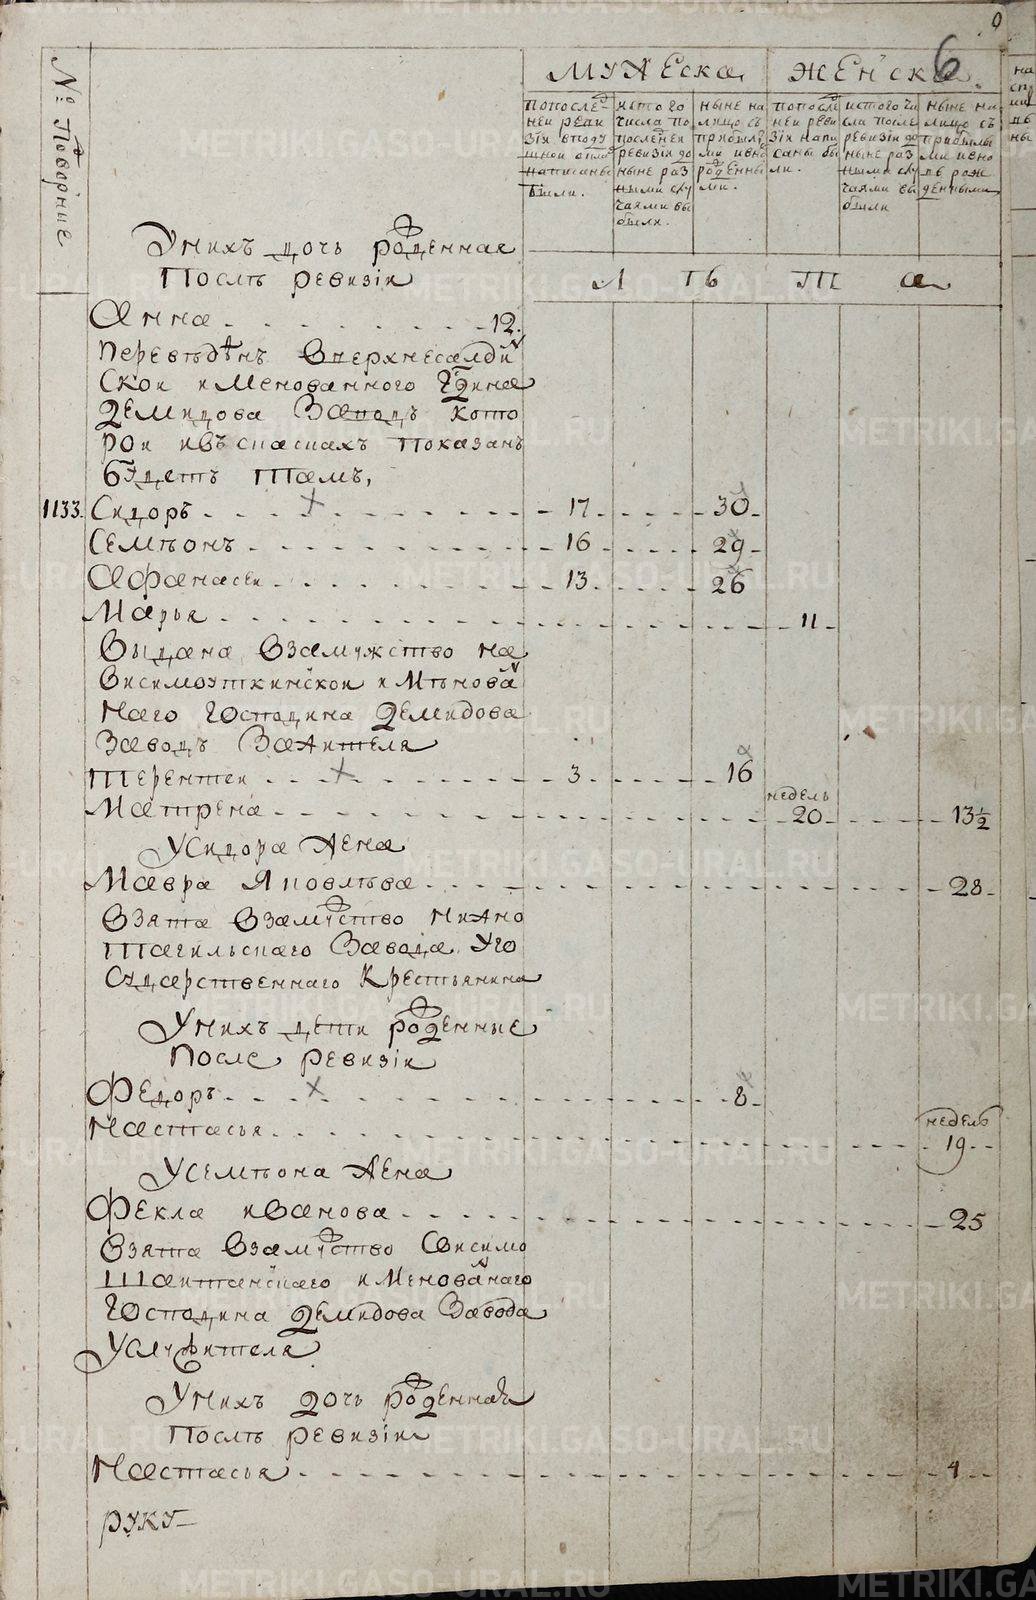 6
№: Подворные
МУЖЕска
ЖЕНска
попосле-
ней реви
зiи вподу
шной окладъ
написаны
были.
истого
числа по
последней
ревизiи до
ныне раз
ными слу
чаями вы
были.
ныне на
лицо съ
прибылы
ми и вно
рожденны
ми.
попосле
ней реви
зiи напи
саны бы
ли.
истого чи
сла после
ревизiи до
ныне раз
ными слу
чаями вы
были
ныне на
лицо съ
прибылы
ми и вно
вь рож
денными
Л ѣ т а
Уних дочь рожденная
Послѣ ревизiи
Анна 12.
переведѣнъ Внерхнесалдин
Скои именованного Гдина
Демидова Заводъ кото
рои ивъспискахъ показанъ
будетъ тамъ,
1133. Сидоръ 17 30
Семѣонъ 16 29
Афанасеи 13 26
Марья 11
Выдана Взамужство на
Висимоуткинскои имѣнован
наго Господина Демидова
Заводъ Зажителя
Терентеи 3 16
недель
Матрена 20 13½
Усидора Жена
Мавра Яковлѣва 28
Взята Взамуство нижно
тагильскаго Завода Уго
сударственнаго Крестьянина
Унихъ дети рожденные
После ревизiи
Федоръ 8
недель
Настасья 19
Усемѣона Жена
Фекла иванова 25
Взята Взамуство Свисимо
Шаитанскаго именованнаго
Господина Демидова Завода
Услужителя
Унихъ дочь рожденная
Послѣ ревизiи
Настасья 4
руку